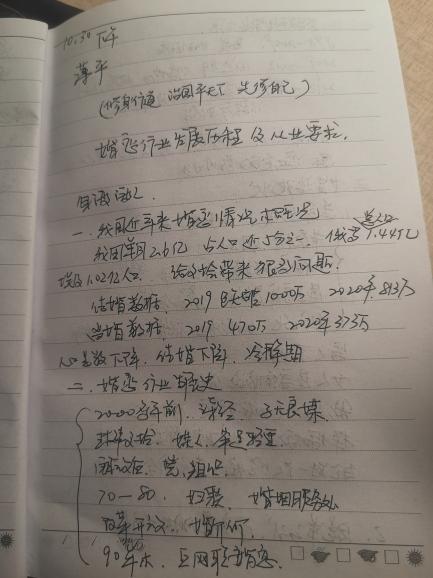 10.30 下午
萍平
(修身行道 治国平天下 先修自己)
婚恋行业发展历程 及从业要求.
一. 我国近年来婚恋情况
我国单身2.6亿 占人口近5分之一. 俄罗 1.44亿 总人口
埃及1.02亿人口. 给社会带来很多问题.
结婚数据. 2019 1000万 2020年.813万
离婚数据. 2019 470万 2020年373万
人口总数下降. 结婚下降. 冷静期
二. 婚恋行业历史
2000多年前. 诗经. 子无良媒.
封建社会. 媒人.
党.组织.
70—80. 妇联. 婚姻服务处
改革开放. 婚介所.
90年末. 互网联婚恋.